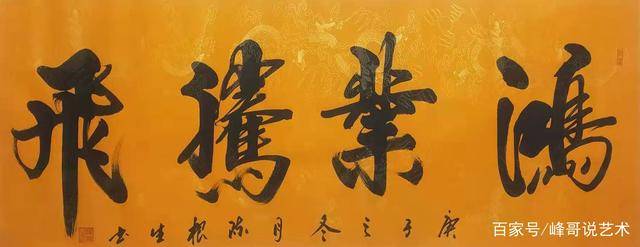 鴻業騰飛
庚子之冬月陈根生书
百家号/峰哥说艺术